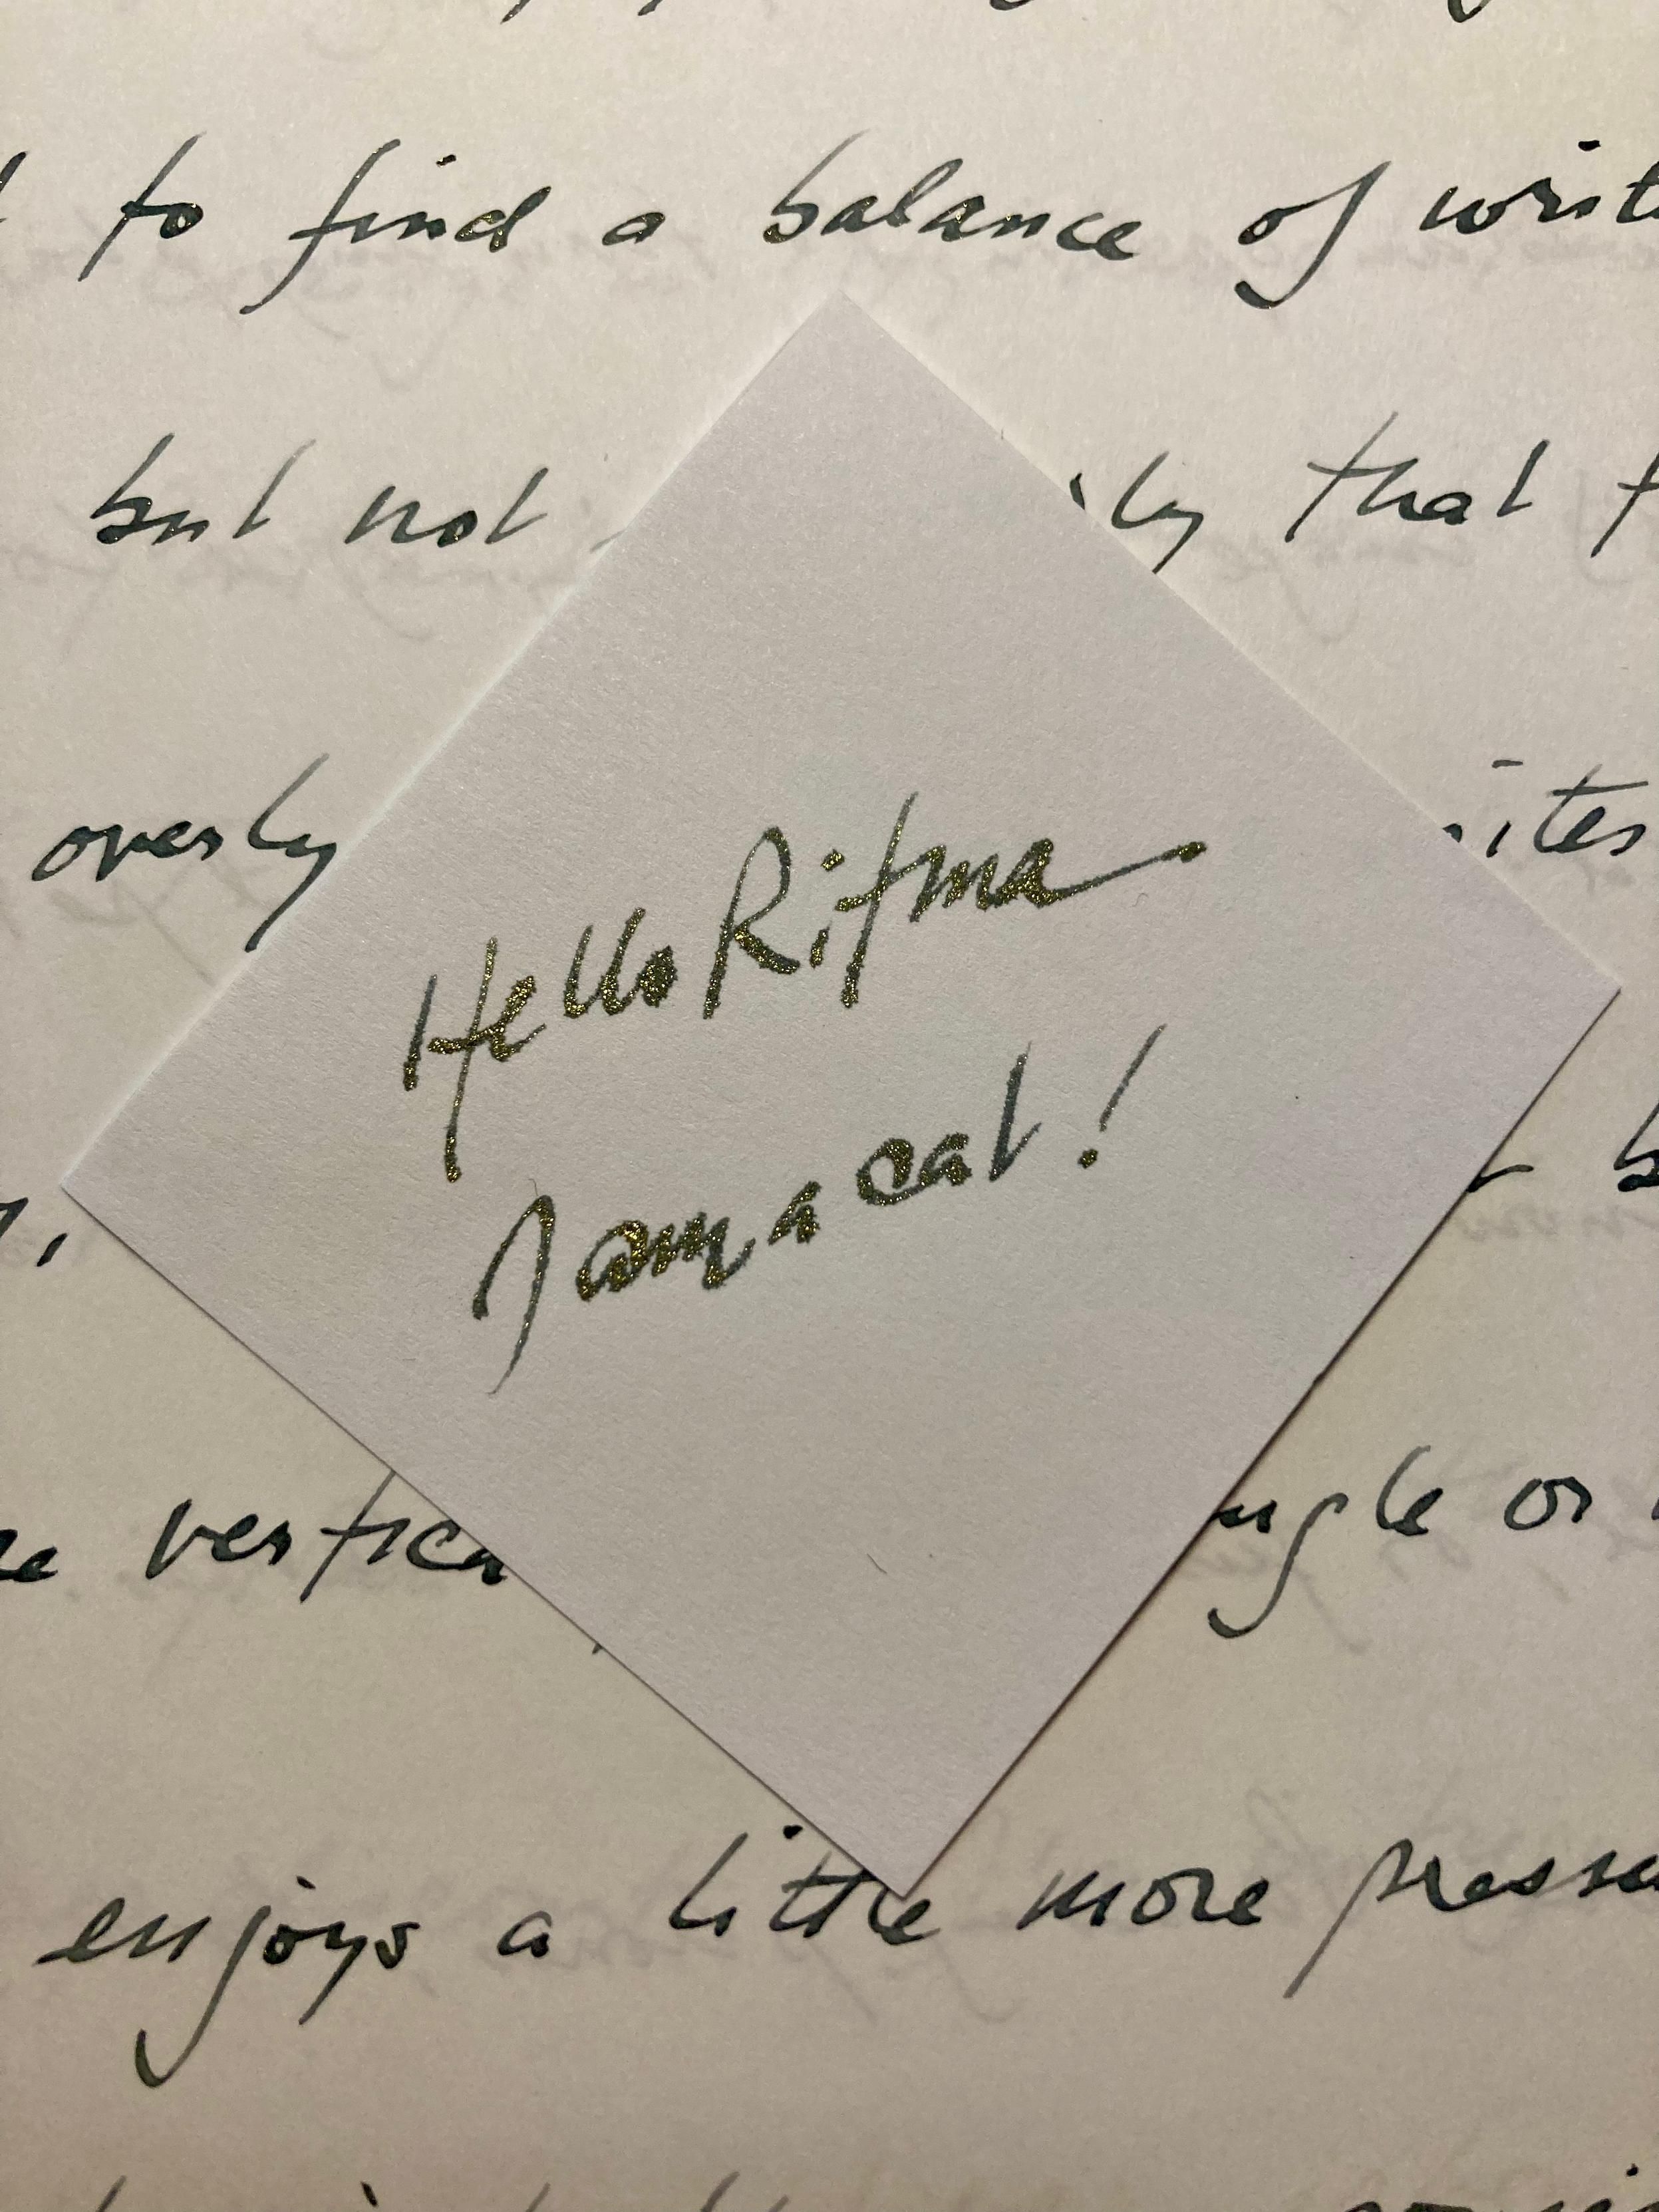 to find a balance of writ
but not ily that f
overly ites
Hello Ritma
I am a cat!
vertica ngle or
enjoys a little more pressu